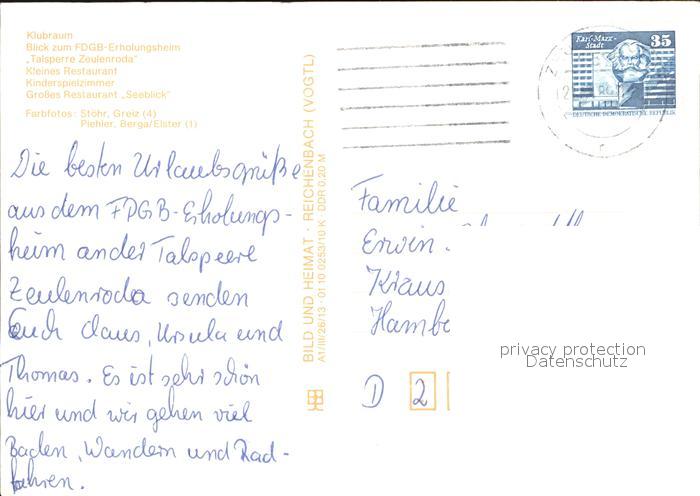 Klubraum
Blick zum FDGB-Erholungsheim
„Talsperre Zeulenroda"
Kleines Restaurant
Kinderspielzimmer
Großes Restaurant „Seeblick"
Farbfotos: Stöhr, Greiz (4)
Piehler, Berga/Elster (1)
Die besten Urlaubsgrüße
aus dem FDGB-Erholungs-
heim an der Talspeere
Zeulenroda senden
Euch Claus, Ursula und
Thomas. Es ist sehr schön
hier und wir gehen viel
Baden, Wandern und Rad-
fahren.
BILD UND HEIMAT · REICHENBACH (VOGTL)
A1/III/26/13 · 01 10 0253/10 K · DDR 0,20 M
Karl-Marx-
Stadt
35
DEUTSCHE DEMOKRATISCHE REPUBLIK
Familie
Erwin
Kraus
Hambe
D 2
privacy protection
Datenschutz